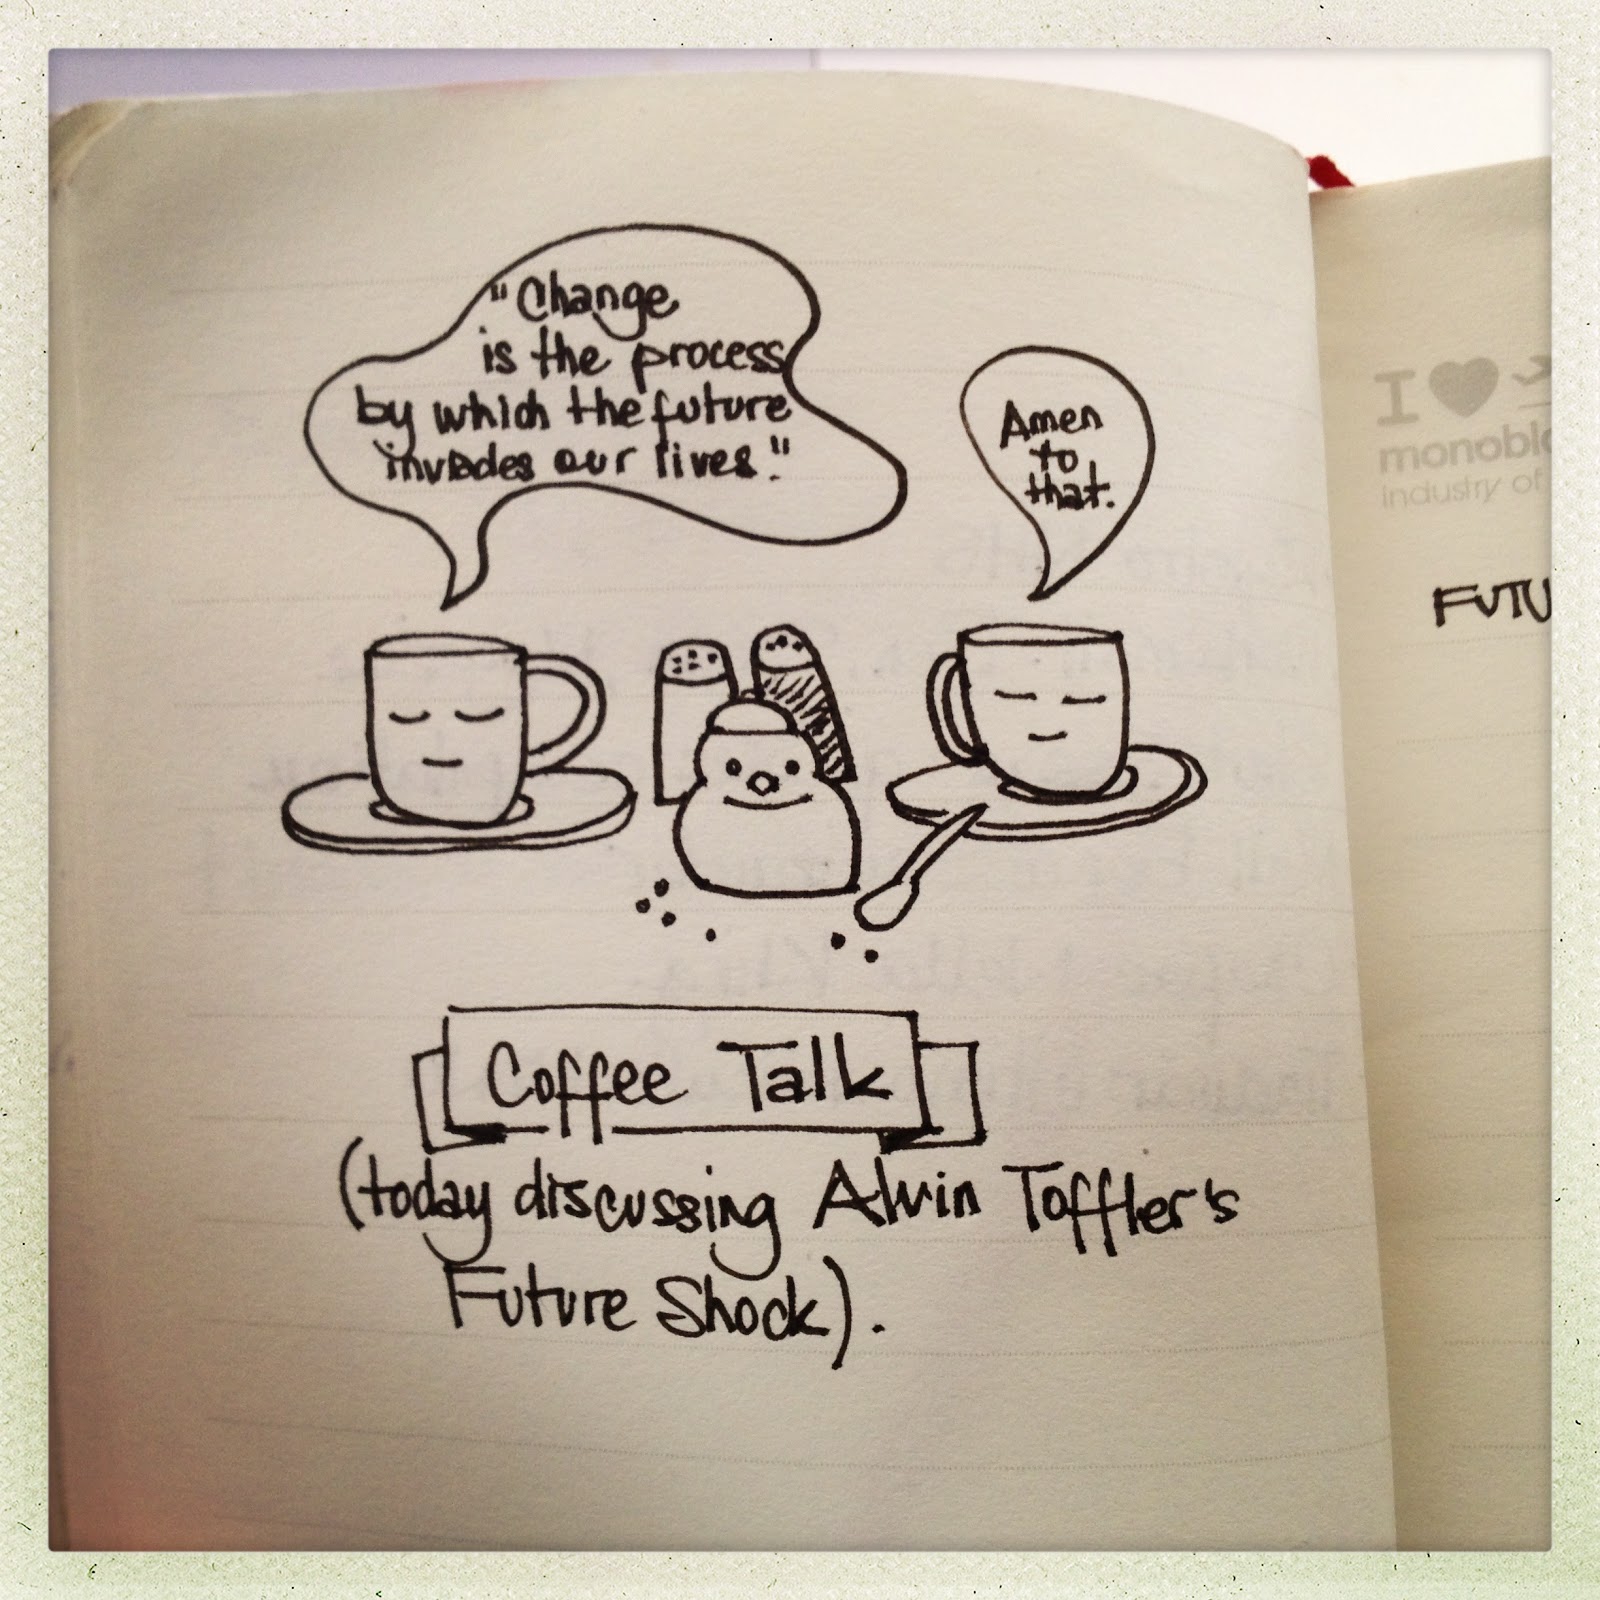 "Change
is the process
by which the future
invades our lives."
Amen
to
that.
Coffee Talk
(today discussing Alvin Toffler's
Future Shock).
I
industry of
FUTU